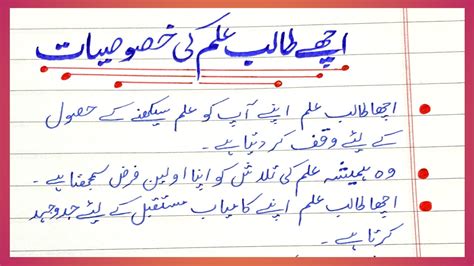 اچھے طالب علم کی خصوصیات
اچھا طالب علم اپنے آپ کو علم سیکھنے کے حصول
کے لئے وقف کر دیتا ہے۔
وہ ہمیشہ علم کی تلاش کو اپنا اولین فرض سمجھتا ہے۔
اچھا طالب علم اپنے کامیاب مستقبل کے لئے جدوجہد
کرتا ہے۔